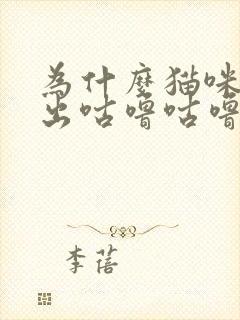 為什麼猫咪
出咕嚕咕嚕
李蓓